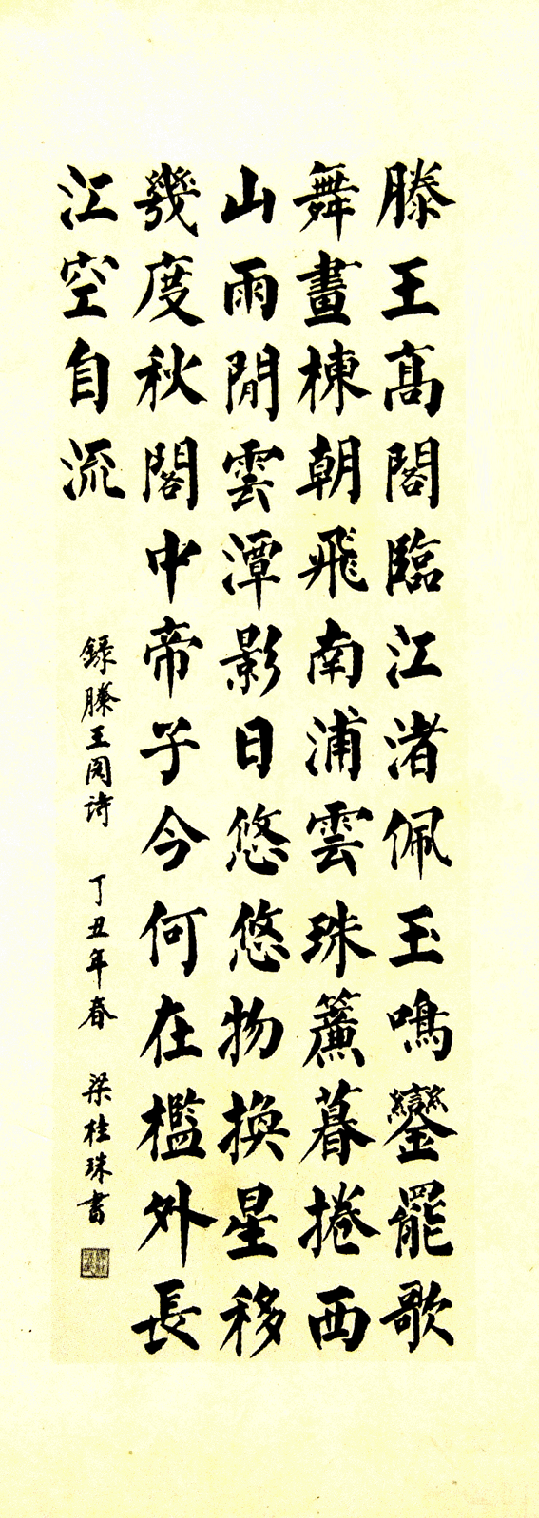 滕王高閣臨江渚佩玉鳴鑾罷歌
舞畫棟朝飛南浦雲珠簾暮捲西
山雨閒雲潭影日悠悠物換星移
幾度秋閣中帝子今何在檻外長
江空自流
錄滕王阁诗 丁丑年春 梁桂珠書